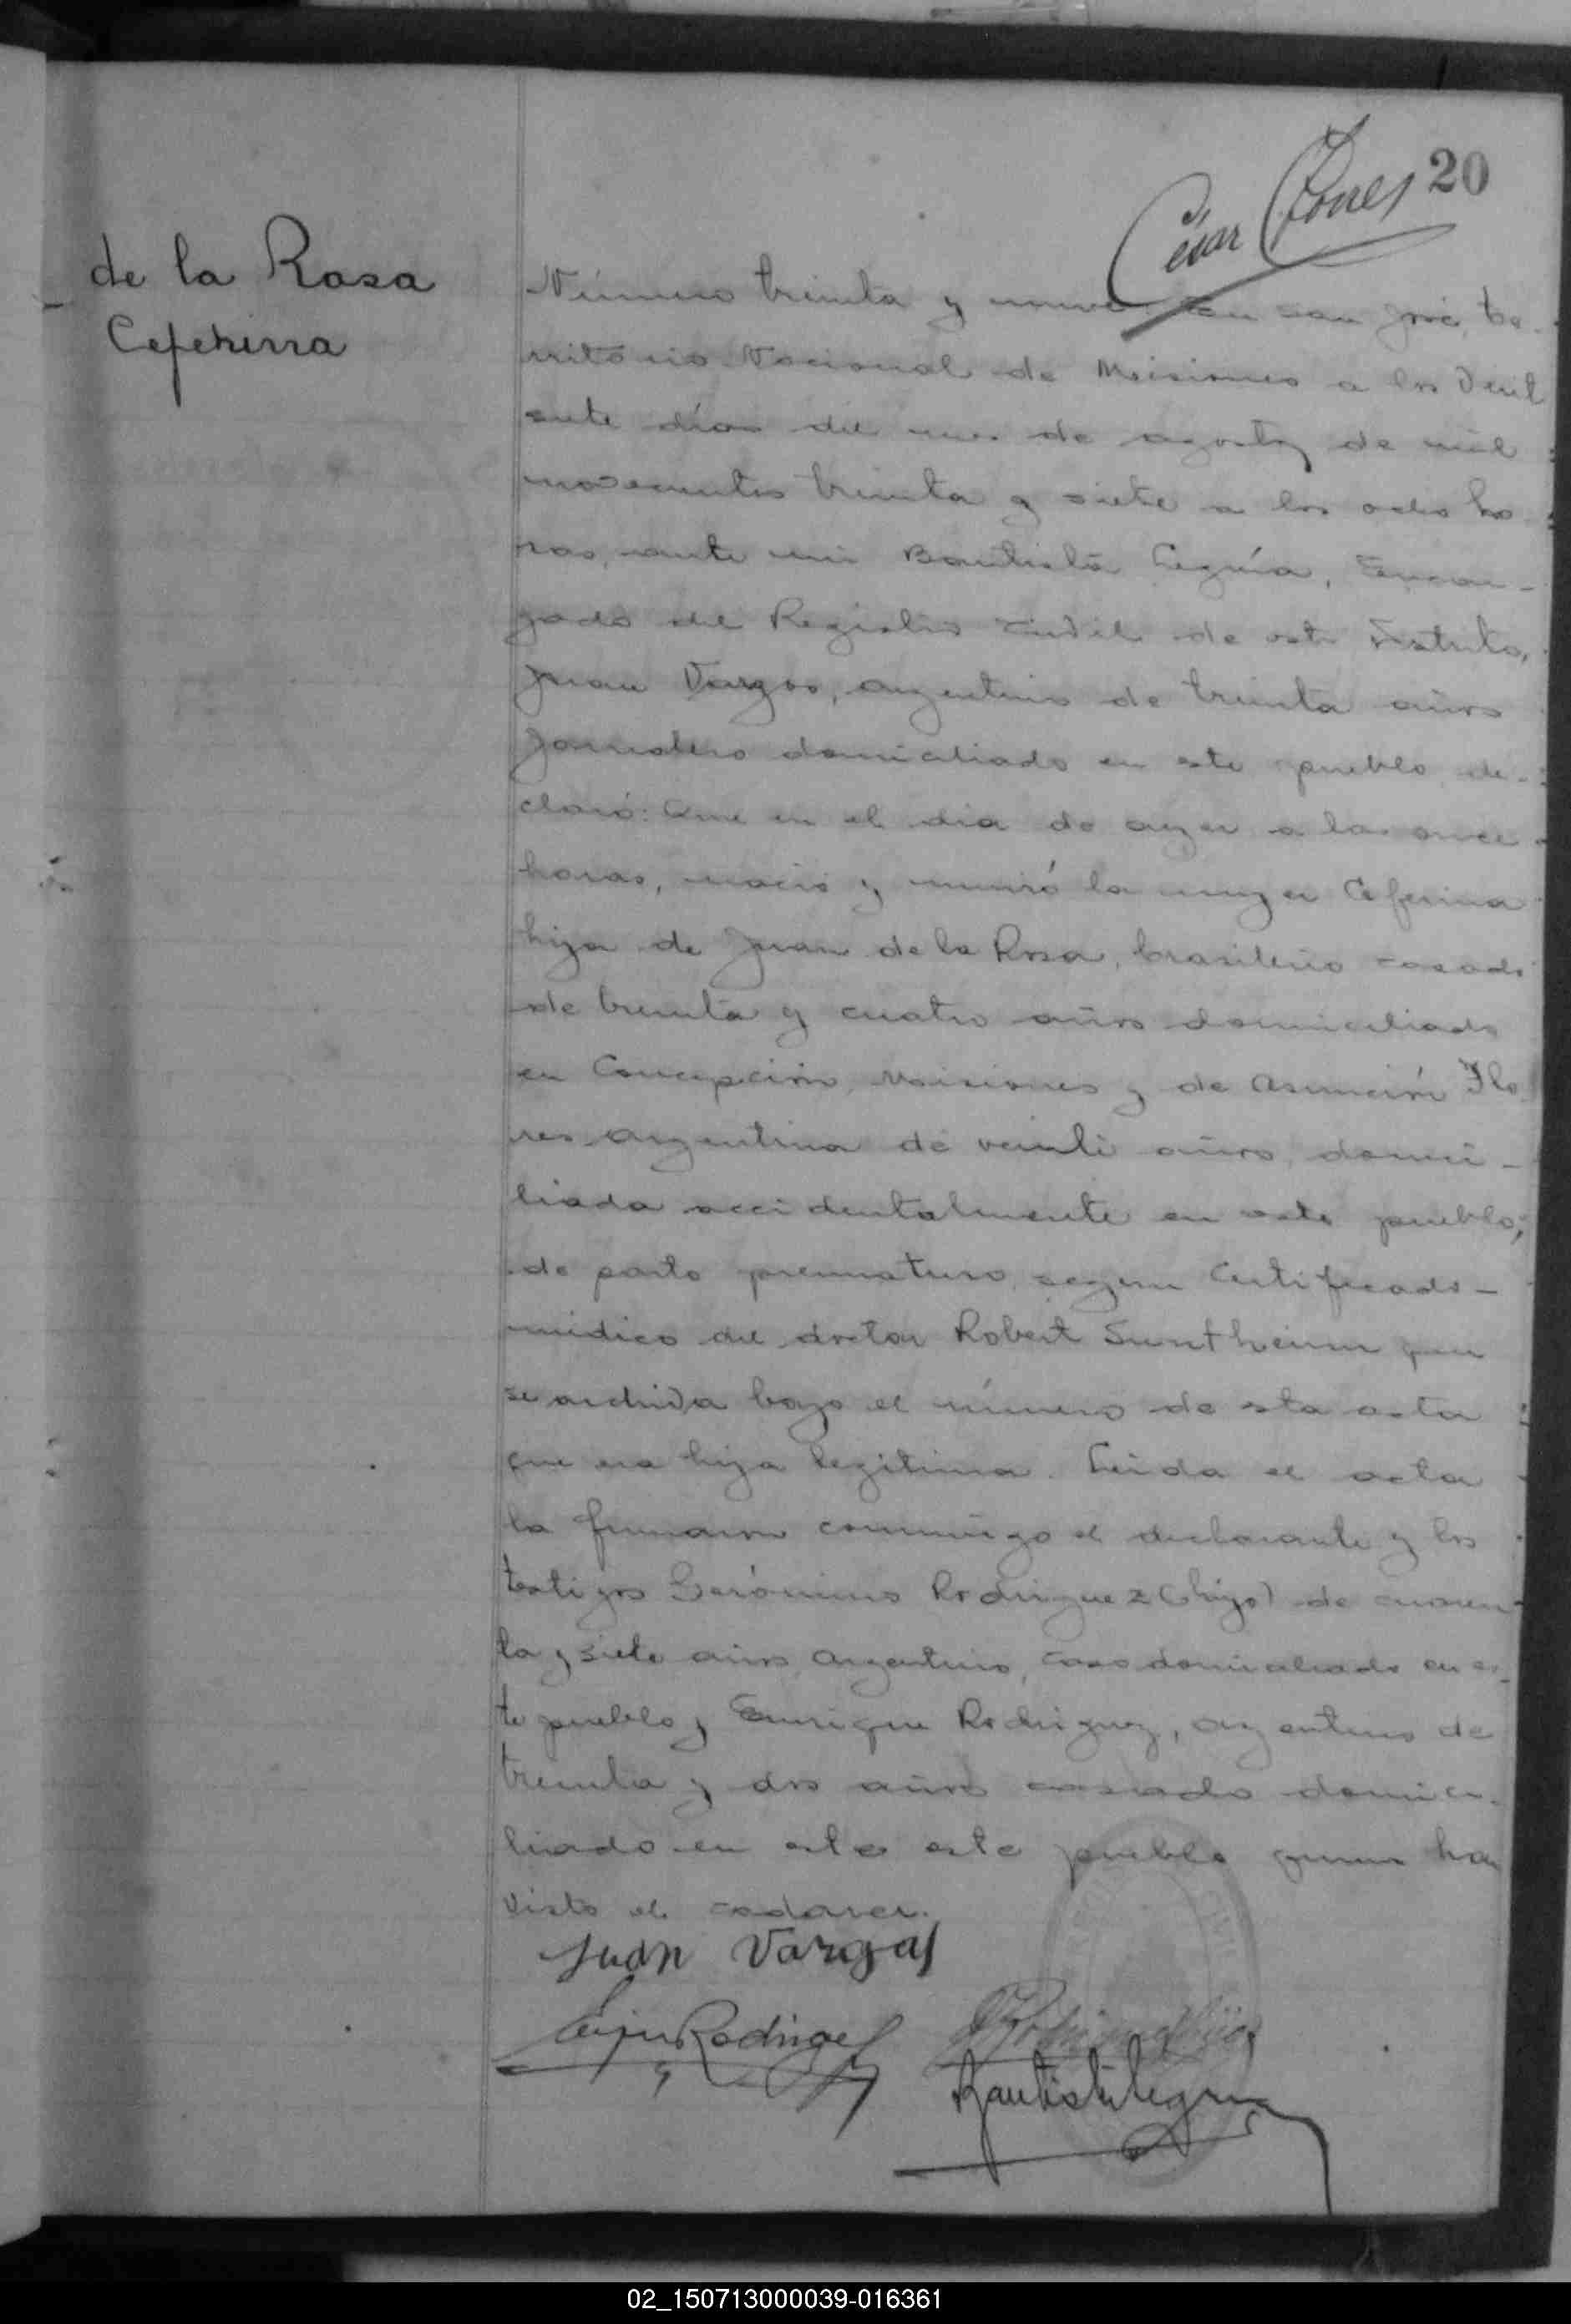 20
César Torres
de la Rosa
Ceferina
Número treinta y nueve: En San José, te-
rritorio Nacional de Misiones a los Veit
siete días del mes de agosto de mil
novecientos treinta y siete a los ocho ho
ras, ante mi Bautista Leguía, Encar-
gado del Registro Civil de este Distrito,
Juan Vargas, argentino de treinta años
Jornalero domiciliado en este pueblo de-
claró: Que en el dia de ayer a las once
horas, nació y murió la mujer Ceferina
hija de Juan de la Rosa, brasileño casado
de treinta y cuatro años domiciliado
en Concepción, Misiones y de Asunción Flo
res argentina de veinti años, domici-
liada accidentalmente en este pueblo;
de parto prematuro, segun Certificado-
médico del doctor Robert Suntheim que
se archiva bajo el número de esta acta
que era hija legitima. Leida el acta
la firmaron conmigo el declarante y los
testigos Gerónimo Rodriguez (hijo) de cuaren-
ta y siete años Argentino, casado domiciliado en es-
te pueblo y Enrique Rodriguez, argentino de
treinta y dos años casado domici-
liado en este este pueblo quienes han
visto el cadaver.
Juan Vargas
Rodriguez
Bautista Leguía
02_150713000039-016361